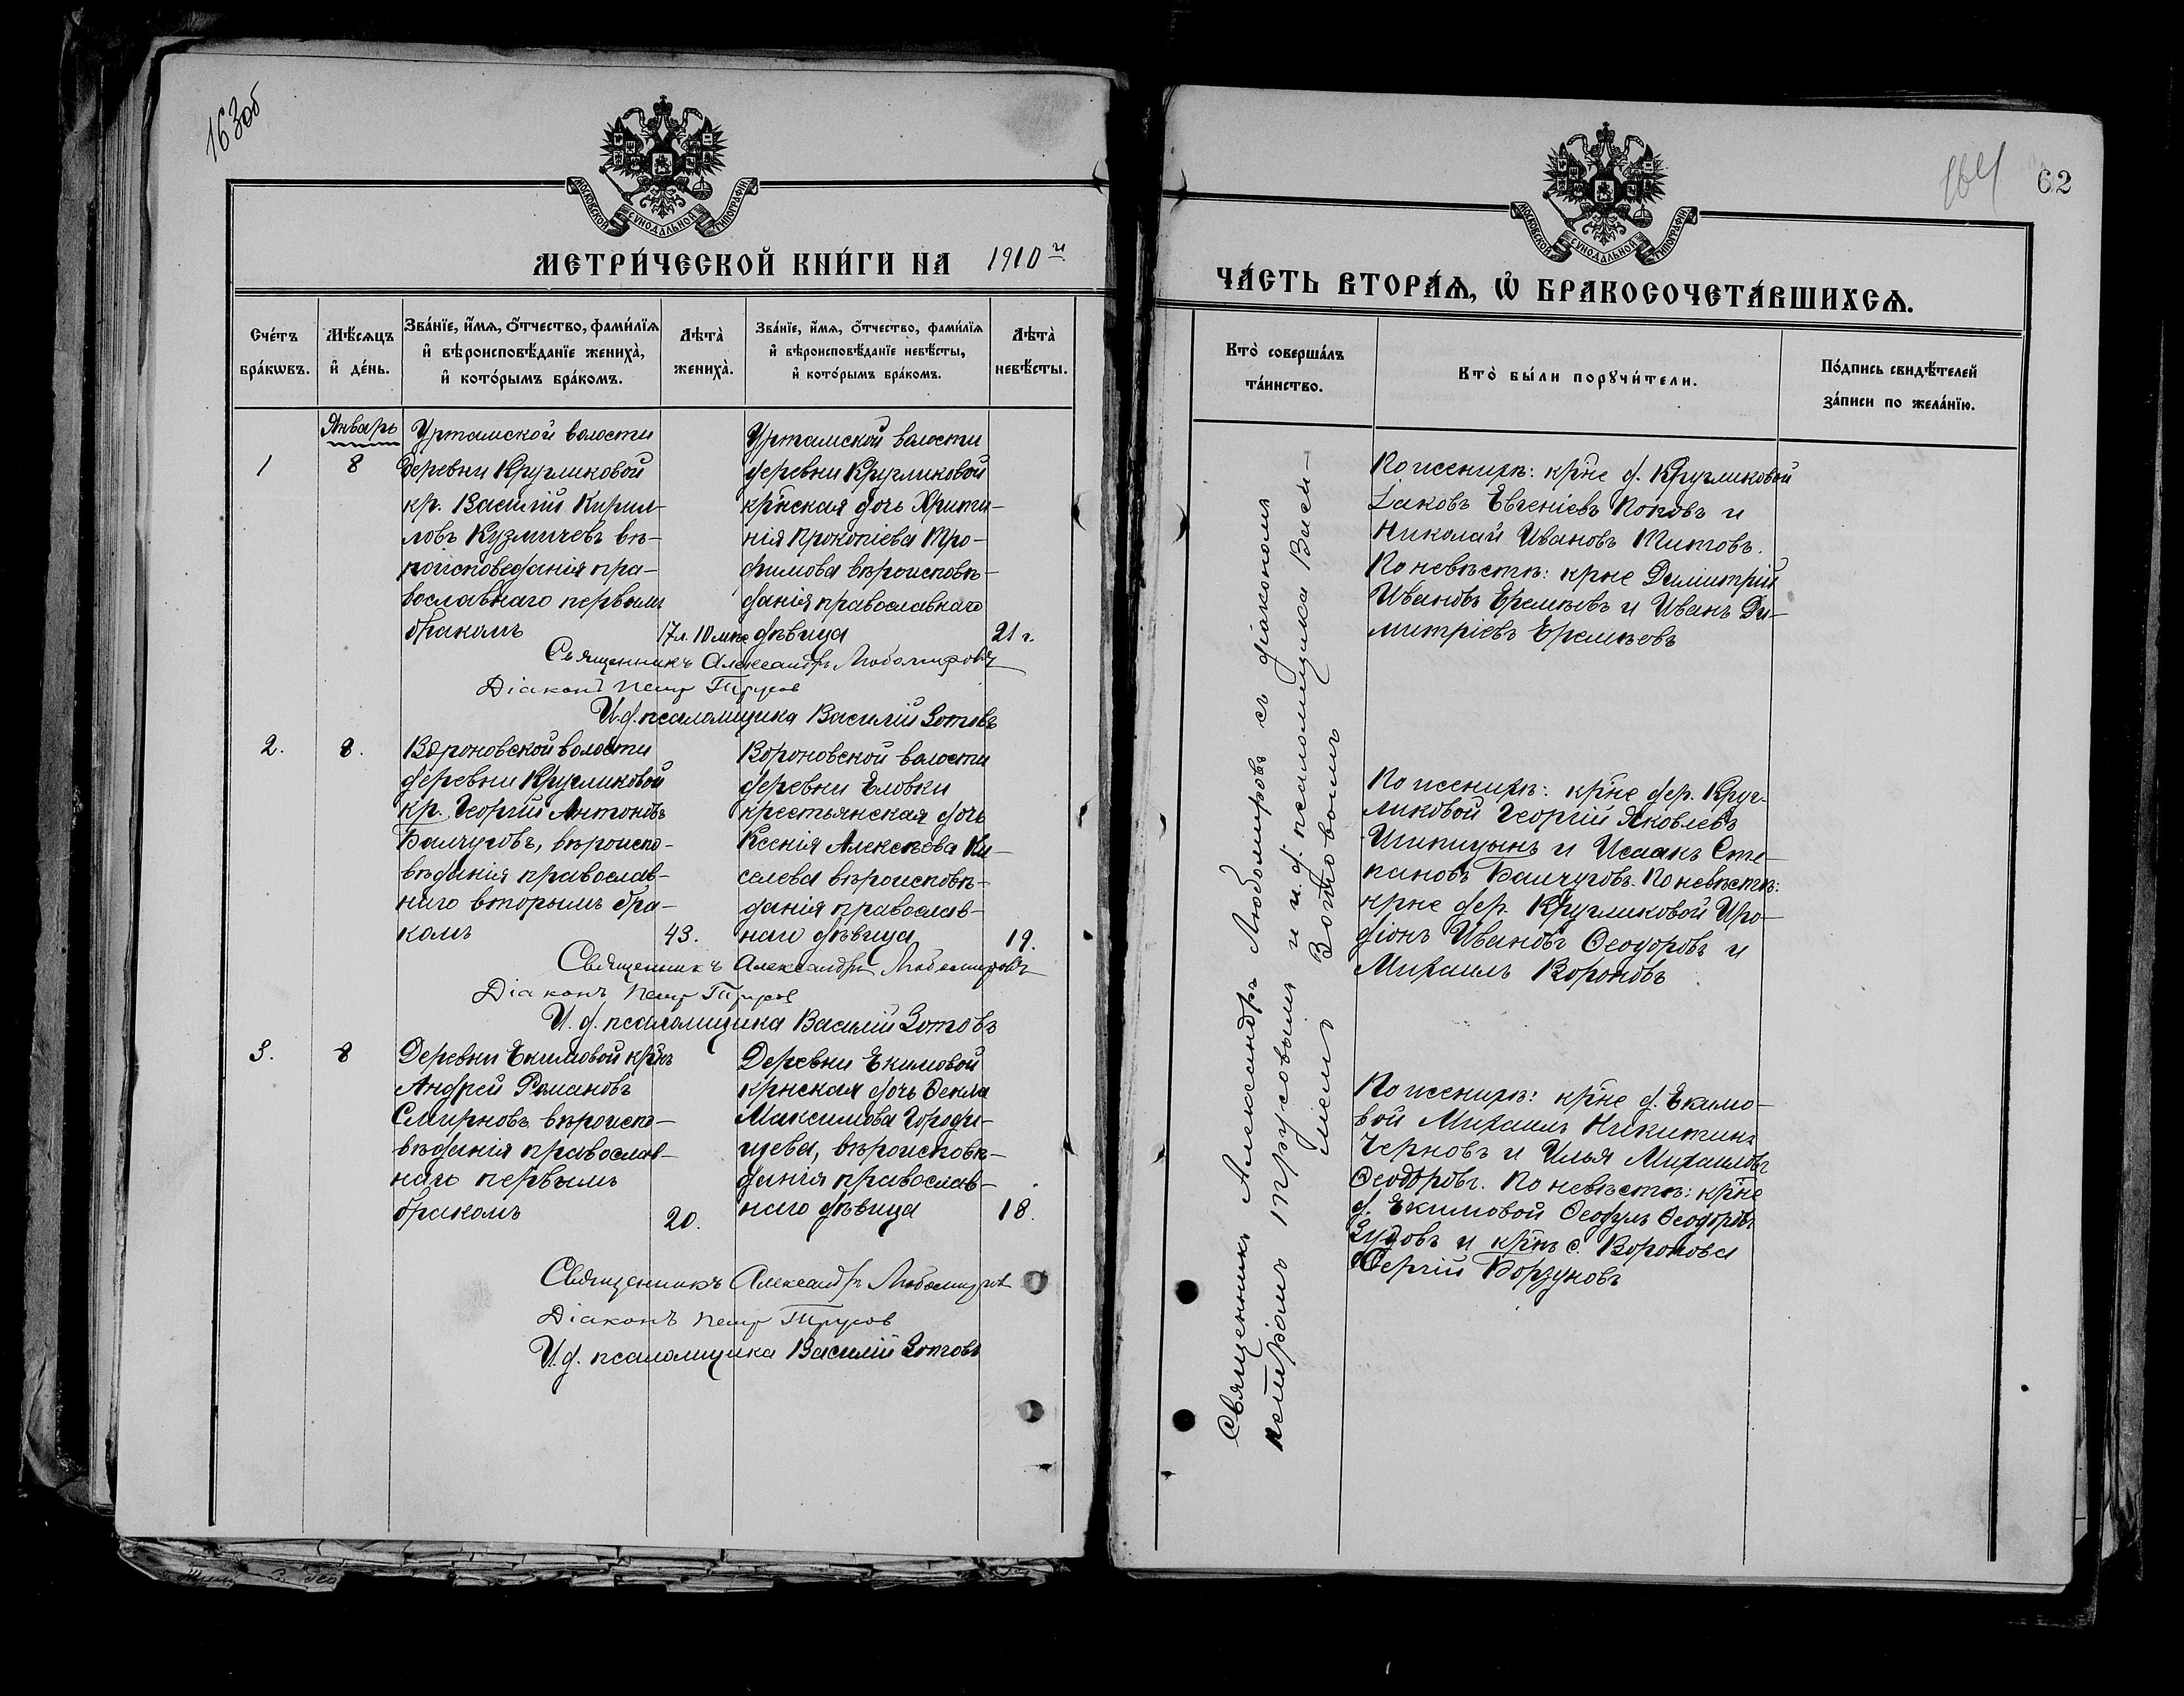 163об
МОСКОВСКОЙ СѴНОДАЛЬНОЙ ТИПОГРАФІИ
МЕТРИ́ЧЕСКОЙ КНИ́ГИ НА 1910 й
Сче́тъ бра́кѡвъ.
Мѣ́сѧцъ и҆ де́нь.
Зва́нїе, и҆́мѧ, ѻ҆́тчество, фами́лїѧ
и҆ вѣроисповѣ́данїе жениха̀,
и҆ кото́рымъ бра́комъ.
Лѣта̀ жениха̀.
Зва́нїе, и҆́мѧ, ѻ҆́тчество, фами́лїѧ
и҆ вѣроисповѣ́данїе невѣ́сты,
и҆ кото́рымъ бра́комъ.
Лѣта̀ невѣ́сты.
Январь
1
8
Уртамской волости
деревни Кругликовой
кр. Василій Кирил-
ловъ Кузмичевъ вѣ-
роисповеданія пра-
вославнаго первымъ
бракомъ
17 л. 10 м.
Уртамской волости
деревни Кругликовой
кр̃нская дочь Хрити-
нія Прокопіева Тро-
фимова вѣроисповѣ-
данія православнаго
дѣвица
21 г.
Священникъ Александръ Любомировъ
Діаконъ Петр Трусов
И.д. псаломщика Василій Зотовъ
2.
8.
Вороновской волости
деревни Кругликовой
кр. Георгій Антоновъ
Балчуговъ, вѣроиспо-
вѣданія православ-
наго вторымъ бра-
комъ
43.
Вороновской волости
деревни Еловки
крестьянская дочь
Ксенія Алексѣева Ки-
селева вѣроисповѣ-
данія православ-
наго дѣвица
19.
Священникъ Александръ Любомировъ
Діаконъ Петр Трусов
И.д. псаломщика Василій Зотовъ
3.
8
Деревни Екимовой кр̃нъ
Андрей Романовъ
Смирновъ вѣроиспо-
вѣданія православ-
наго первымъ
бракомъ
20.
Деревни Екимовой
крнская дочь Ѳекла
Максимова Городи-
щева, вѣроисповѣ-
данія православ-
наго дѣвица
18.
Священникъ Александръ Любомиров
Діаконъ Петр Трусов
И.д. псаломщика Василій Зотовъ
164
62
МОСКОВСКОЙ СѴНОДАЛЬНОЙ ТИПОГРАФІИ
ЧА́СТЬ ВТОРА́Ѧ, Ѡ҆ БРАКОСОЧЕТА́ВШИХСѦ.
Кто̀ соверша́лъ
та́инство.
Кто̀ бы́ли порꙋчи́тели.
По́дпись свидѣ́телей
за́писи по жела́нїю.
Священникъ Александръ Любомировъ съ діакономъ
Петромъ Трусовымъ и и.д. псаломщика Васи-
ліемъ Зотовымъ
По женихѣ: кр̃не д. Кругликовой
Іаковъ Евгеніевъ Поповъ и
Николай Ивановъ Титовъ.
По невѣстѣ: крне Димитрій
Ивановъ Еремѣевъ и Иванъ Ди-
митріевъ Еремѣевъ
По женихѣ: кр̃не дер. Круг-
ликовой Георгій Яковлевъ
Шипицынъ и Исаакъ Сте-
пановъ Балчуговъ. По невѣстѣ:
крне дер. Кругликовой Иро-
діонъ Ивановъ Ѳеодоровъ и
Михаилъ Вороновъ
По женихѣ: кр̃не д. Екимо-
вой Михаилъ Никитинъ
Черновъ и Илья Михаиловъ
Ѳеодоровъ. По невѣстѣ: кр̃не
д. Екимовой Ѳеодулъ Ѳеодоровъ
Зудовъ и кр̃нъ с. Воронова
Сергій Борзуновъ